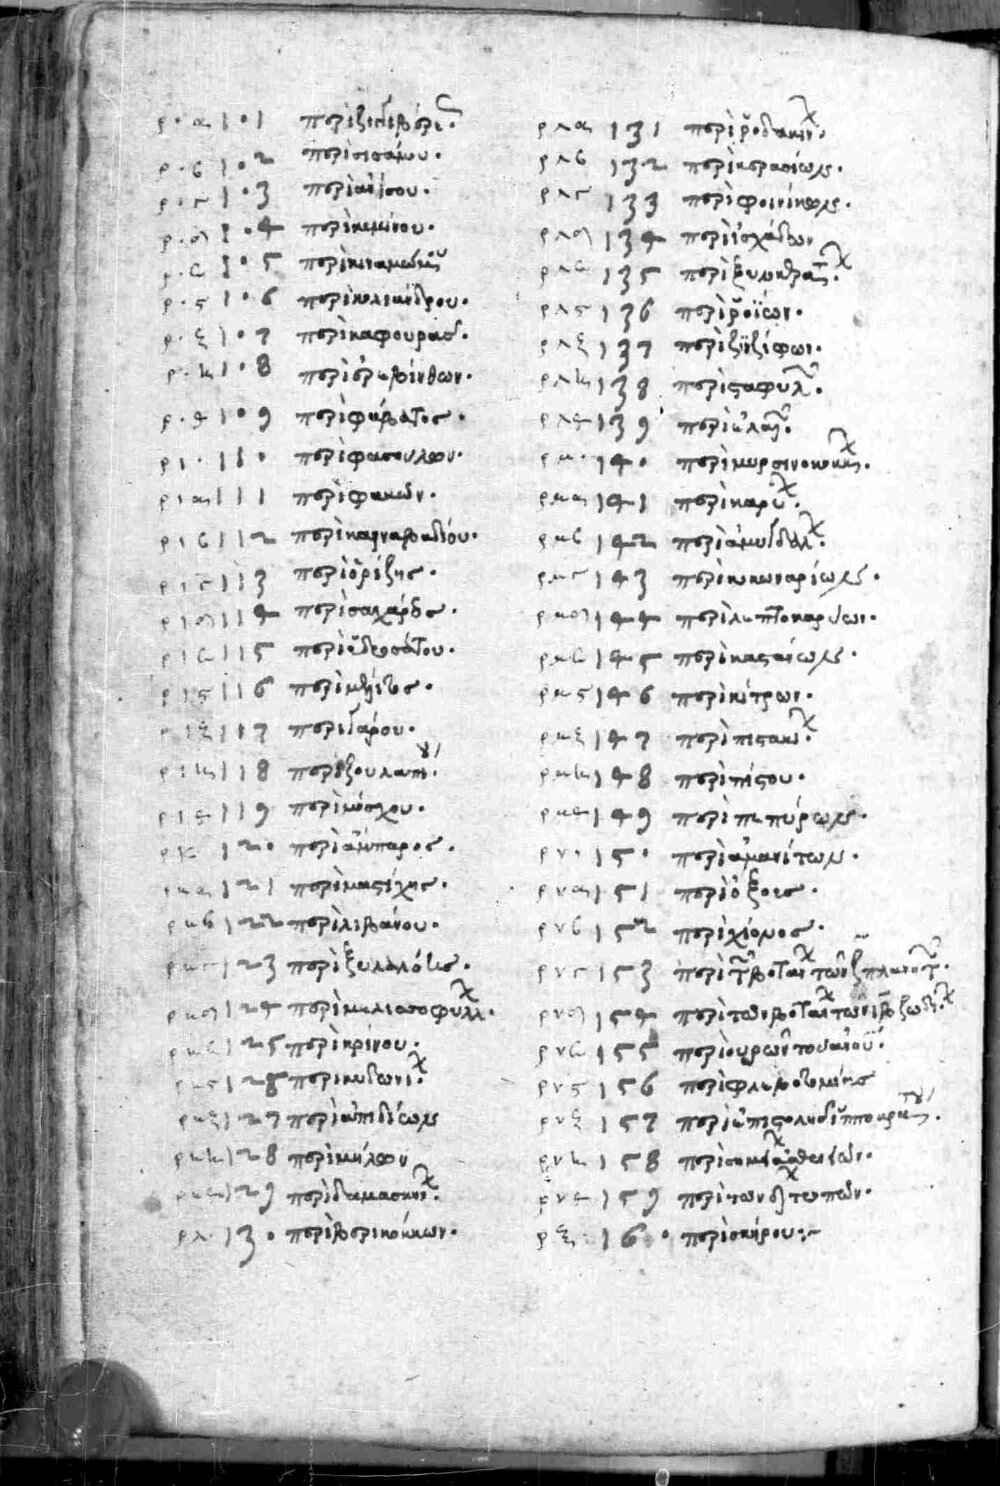 ρ·α 1·1 περὶ ζιγγιβέρε·
ρ·β 1·2 περὶ σισάμου·
ρ·γ 1·3 περὶ ἀνίσου·
ρ·δ 1·4 περὶ κυμίνου·
ρ·ε 1·5 περὶ
ρ·ς 1·6 περὶ κολιάνδρου·
ρ·ζ 1·7 περὶ καφουρᾶς·
ρ·η 1·8 περὶ ἐρεβίνθων·
ρ·θ 1·9 περὶ φάβατος·
ρι· 11· περὶ φασούλων·
ρια 111 περὶ φακῶν·
ριβ 112 περὶ κανναβαδίου·
ριγ 113 περὶ ὀρίζης·
ριδ 114 περὶ σαχάρδε·
ριε 115 περὶ ὑδροσάτου·
ρις 116 περὶ μέλιτος·
ριζ 117 περὶ γάρου·
ριη 118 περὶ ζουλαπί·
ριθ 119 περὶ μόσχου·
ρκ 12· περὶ ἄμπαρος·
ρκα 121 περὶ μαστίχης·
ρκβ 122 περὶ λιβάνου·
ρκγ 123 περὶ ξυλαλόης·
ρκδ 124 περὶ μηλισσοφύλλ·
ρκε 125 περὶ κρίνου·
ρκς 126 περὶ κυδωνί·
ρκζ 127 περὶ ἀπιδίων
ρκη 128 περὶ μήλων
ρκθ 129 περὶ δαμασκην·
ρλ· 13· περὶ βερικόκκων·
ρλα 131 περὶ ῥοδακίν·
ρλβ 132 περὶ κερασίων·
ρλγ 133 περὶ φοινίκων·
ρλδ 134 περὶ ἰσχάδων
ρλε 135 περὶ ξυλοκερατ·
ρλς 136 περὶ ῥοϊῶν·
ρλζ 137 περὶ ζϊζίφων·
ρλη 138 περὶ σταφυλ·
ρλθ 139 περὶ ἐλαι·
ρμ· 14· περὶ μυρσινοκοκκ·
ρμα 141 περὶ καρύ·
ρμβ 142 περὶ ἀμυγδαλ·
ρμγ 143 περὶ κουκουναρίων·
ρμδ 144 περὶ λεπτοκαρύων·
ρμε 145 περὶ καστάνων·
ρμς 146 περὶ κίτρων·
ρμζ 147 περὶ πιστακί·
ρμη 148 περὶ πίσου·
ρμθ 149 περὶ πεπύρων·
ρν· 15· περὶ ἀμανίτων·
ρνα 151 περὶ ὄξους·
ρνβ 152 περὶ χιόνος·
ρνγ 153 περὶ τῶν βοταν τῶν ζ πλανητ·
ρνδ 154 περὶ τῶν βοταν τῶν ιβ ζωδί·
ρνε 155 περὶ οὐρῶν τοῦ
ρνς 156 περὶ φλεβοτομίας
ρνζ 157 περὶ ἐπιστολῆς ἱπποκράτ·
ρνη 158 περὶ σημ ἀσθενῶν·
ρνθ 159 περὶ τῶν τόπων·
ρξ 16· περὶ σκίρου:~